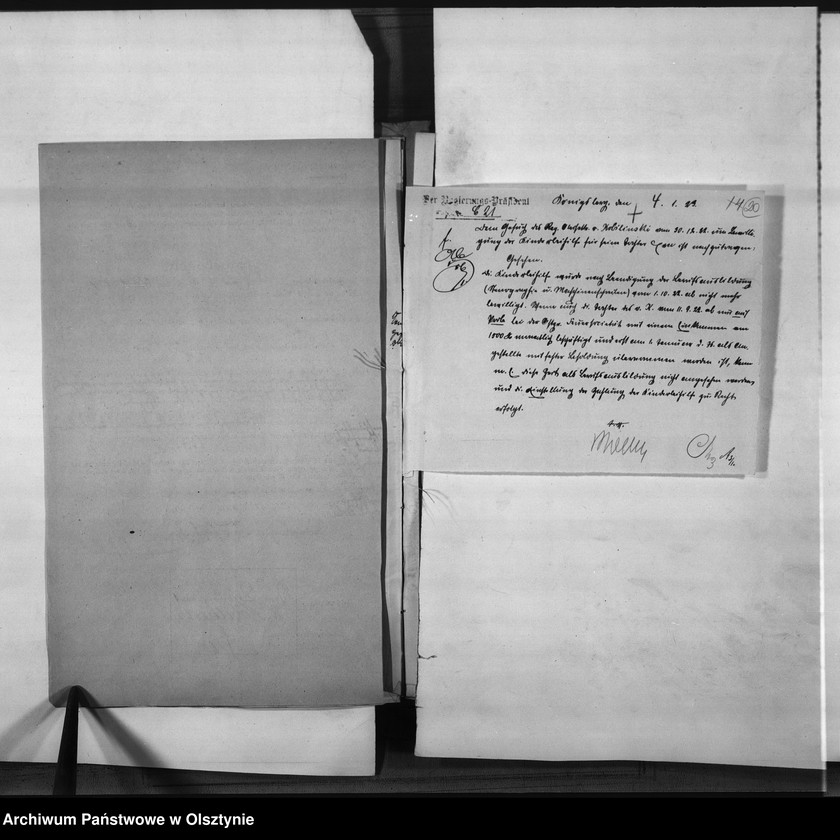 Der Regierungs-Präsident
Königsberg, den 4. 1. 23.
14 20
C 21
Dem Gesuch des Reg. v. Kobilinski vom 20. 12. 22 um Bewilli-
gung der Kinderbeihilfe für seine Tochter ist
Geschehen.
Die Kinderbeihilfe wurde nach Beendigung der Berufsausbildung
(Stenographie u. Maschinenschreiben) vom 1. 10. 22. ab nicht mehr
bewilligt. Wenn auch die Tochter des v. K. vom 11. 9. 22. ab nur auf
Probe bei der Ostpr. Feuersozietät mit einem Einkommen von
1000 M monatlich beschäftigt und erst am 1. Januar d. Js. als An-
gestellte mit fester Besoldung übernommen worden ist, kann
m. E. diese Zeit als Berufsausbildung nicht angesehen werden
und die Einstellung der Zahlung der Kinderbeihilfe zu Recht
erfolgt.
Archiwum Państwowe w Olsztynie